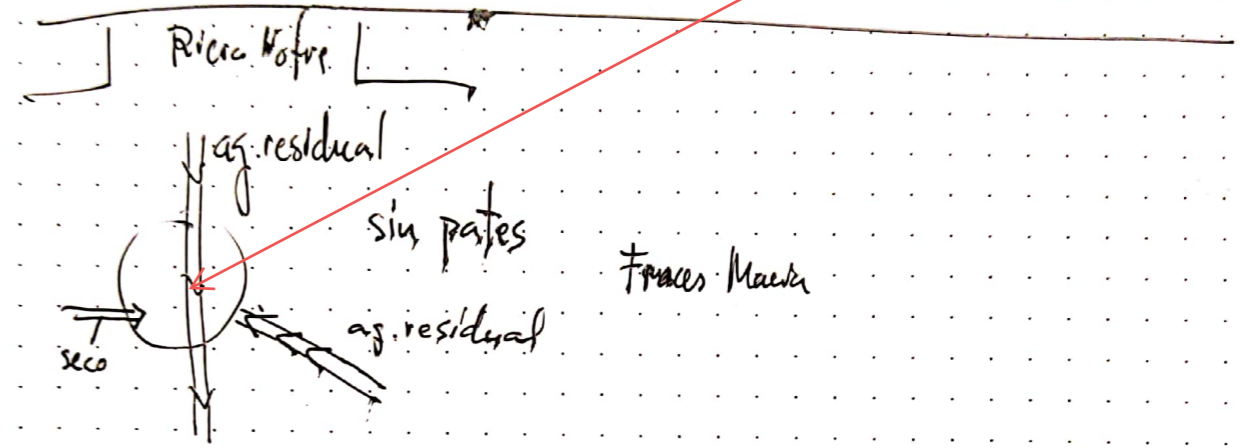 Riera Nofre
ag. residual
sin pates
Frances Macia
ag. residual
seco